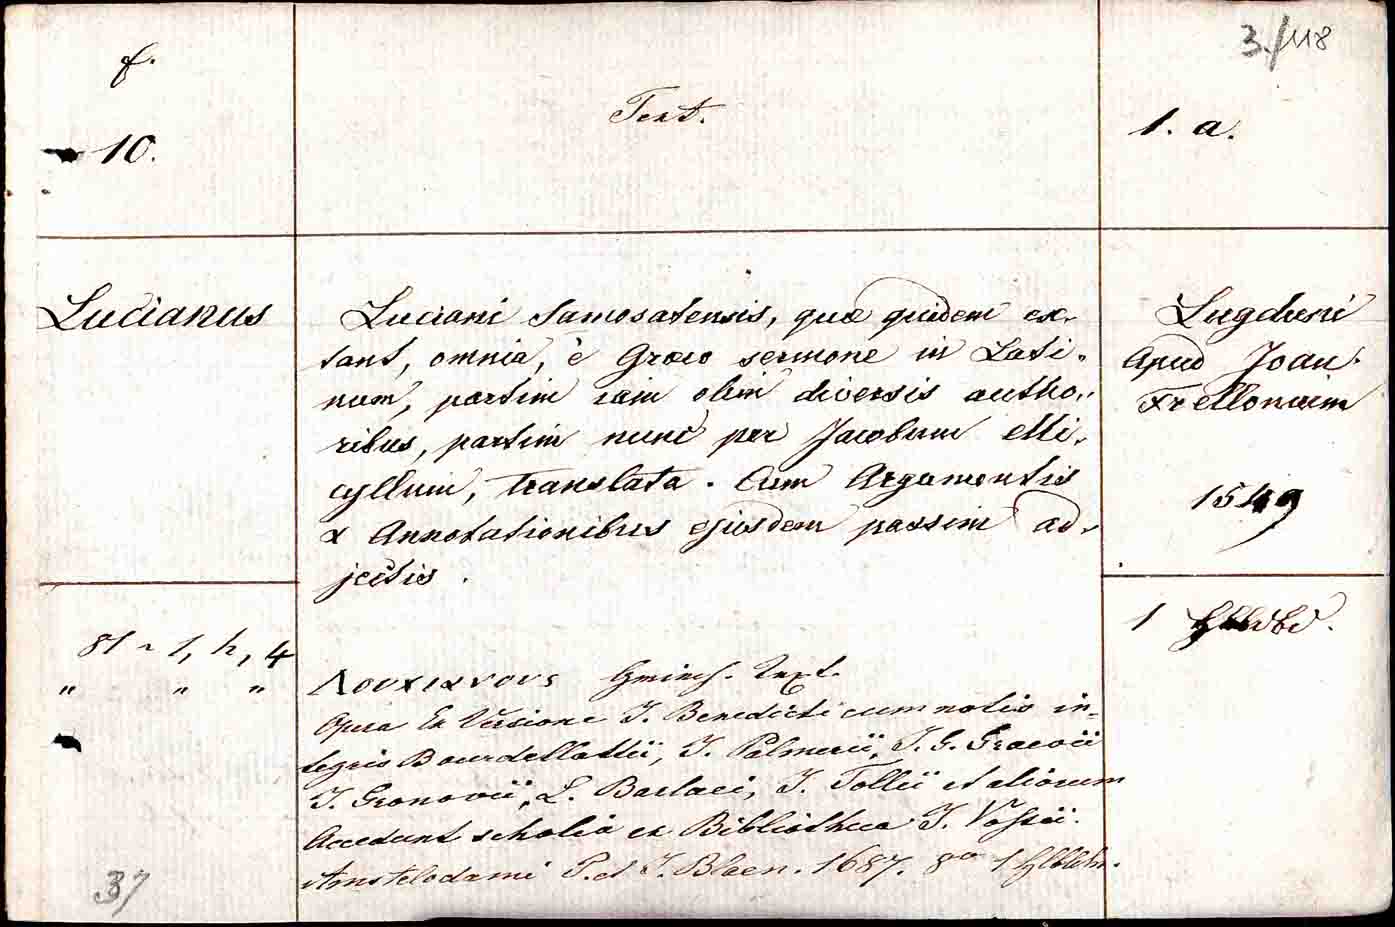 f.
10.
Text.
3./118
1. a.
Lucianus
Luciani Samosatensis, quæ quidem ex-
tant, omnia, è Græco sermone in Lati-
num, partim iam olim diversis autho-
ribus, partim nunc per Jacobum Mi-
cyllum, translata. Cum Argumentis
& Annotationibus ejusdem passim ad-
jectis.
Lugduni
Apud Joan.
Frellonium
1549
1 Hlbld.
81 1, h, 4
" " "
Λουχιανους Text.
Opera Ex Versione J. Benedicti cum notis in-
tegris Bourdellottii, J. Palmerii, J. G. Graevii
J. Gronovii, L. Barlaei, J. Tollii et aliorum
Accedunt scholia ex Bibliotheca J. Vossii.
Amstelodami P. et J. Blaen. 1687. 8º 1
37